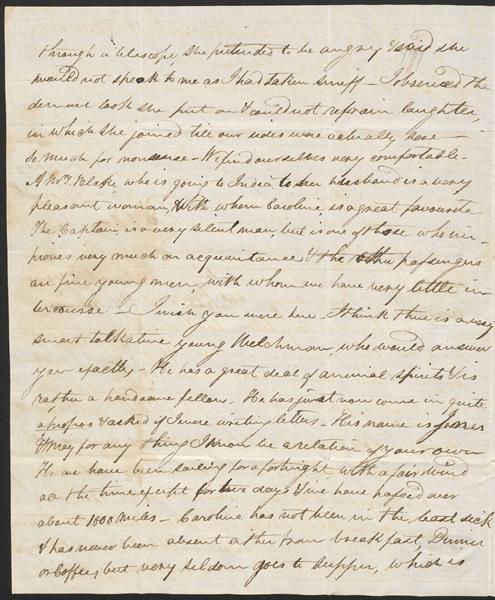 through a telescope, she pretended to be angry & said she
would not speak to me as I had taken snuff – I observed the
demure look she put on & could not refrain laughter,
in which she joined till our sides were actually sore –
So much for nonsense – We find ourselves very comfortable –
A Mrs. Blake who is going to India to her husband is a very
pleasant woman, & with whom Caroline, is a great favourite
The Captain is a very silent man, but is one of those who im-
proves very much on acquaintance & the other passengers
are fine young men, with whom we have very little in-
tercourse – I wish you were here – I think there is a very
smart talkative young Welchman, who would answer
you exactly – He has a great deal of animal spirits & is
rather a handsome fellow. He has just now come in quite
apropos & asked if I were writing letters – His name is Jones
& may for any thing I know be a relation of your own
We have been sailing for a fortnight with a fair wind
all the time except for two days & we have passed over
about 1000 miles – Caroline has not been in the least sick
& has never been absent either from breakfast, Dinner
or Coffee, but very seldom goes to supper, which is